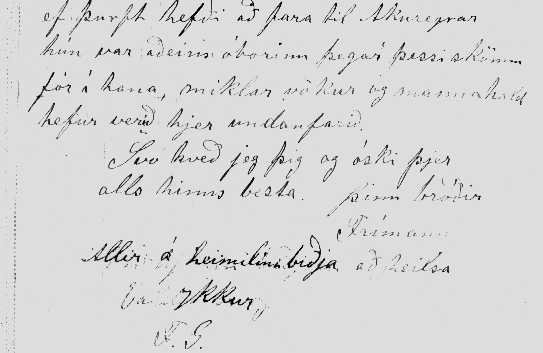 ef þurft hefði að fara til Akureyrar
hún var aðeins óborinn þegar þessi skömm
fór í hana, miklar vökur og mannahald
hefur verið hjer undanfarið.
Svo kveð jeg þig og óski þjer
alls hins besta. þinn bróðir
Frímann
Allir á heimilinu biðja að heilsa
ykkur
F. G.